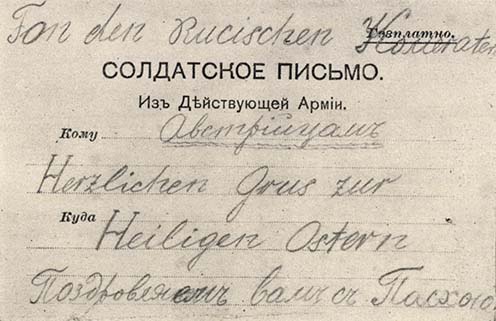 Fon den Rucischen Kameraten
Безплатно.
СОЛДАТСКОЕ ПИСЬМО.
Изъ Дѣйствующей Арміи.
Кому Австрійцамъ
Herzlichen Grus zur
Куда Heiligen Ostern
Поздровляемъ вамъ съ Пасхою